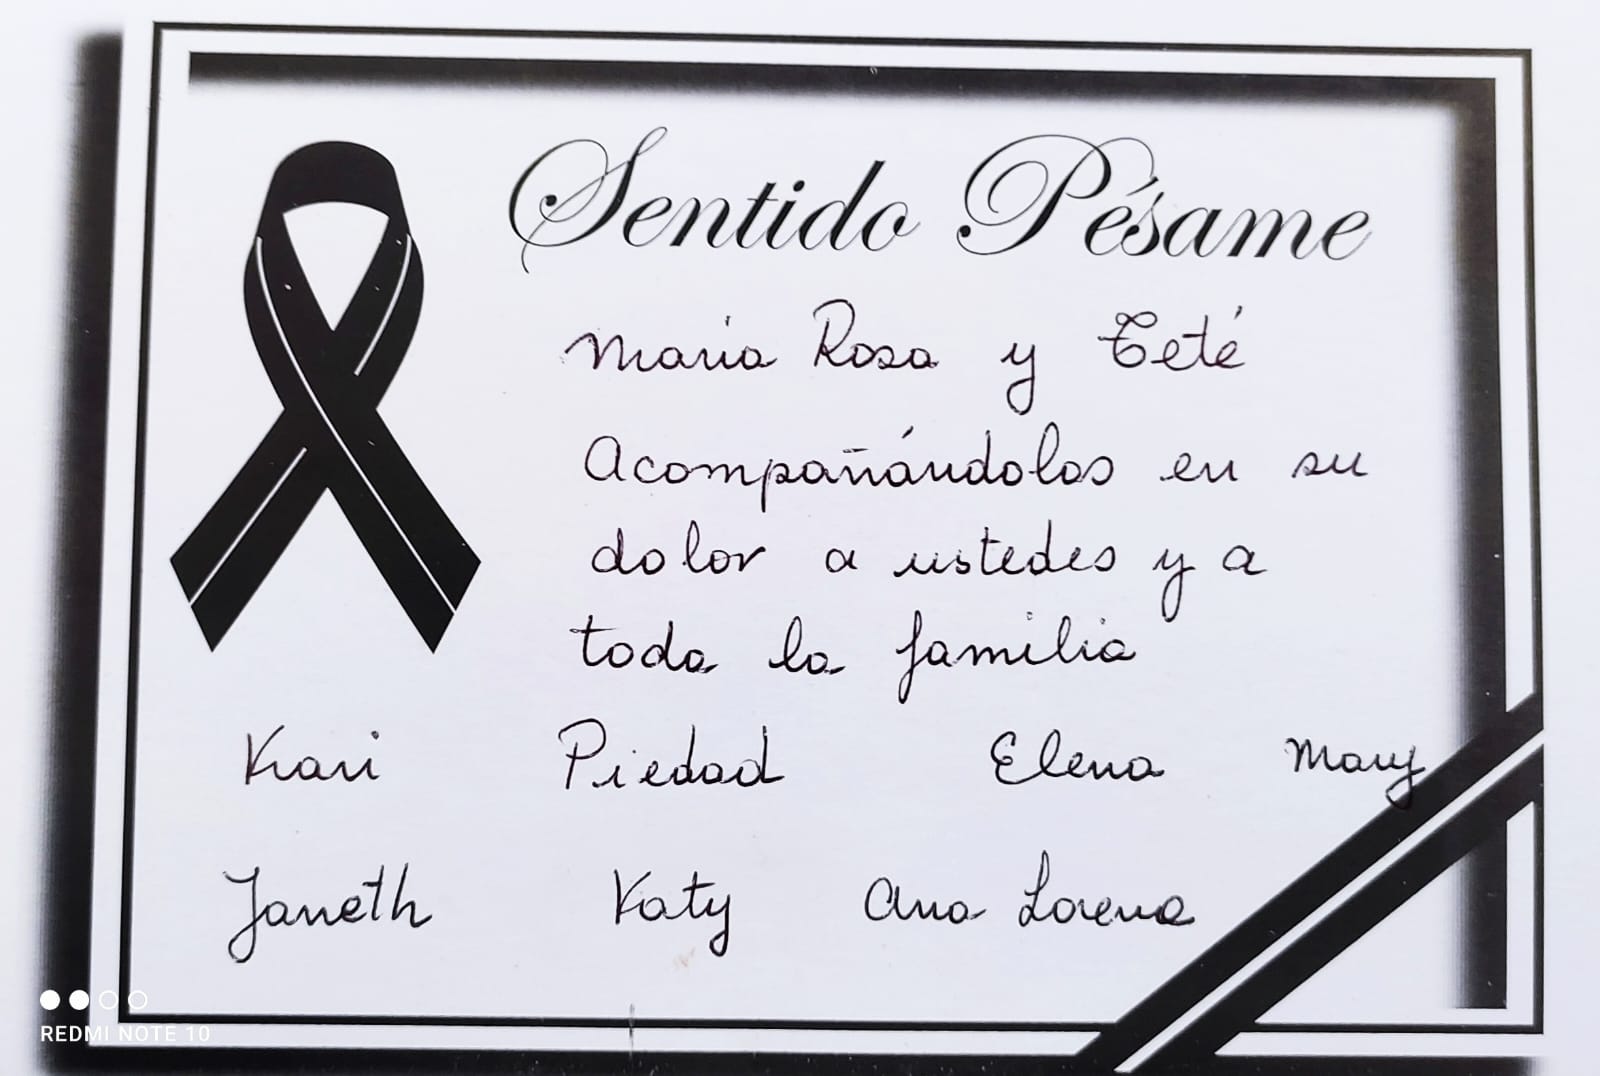 Sentido Pésame
Maria Rosa y Teté
Acompañándolos en su
dolor a ustedes y a
toda la familia
Kari Piedad Elena Mary
Janeth Katy Ana Lorena
REDMI NOTE 10